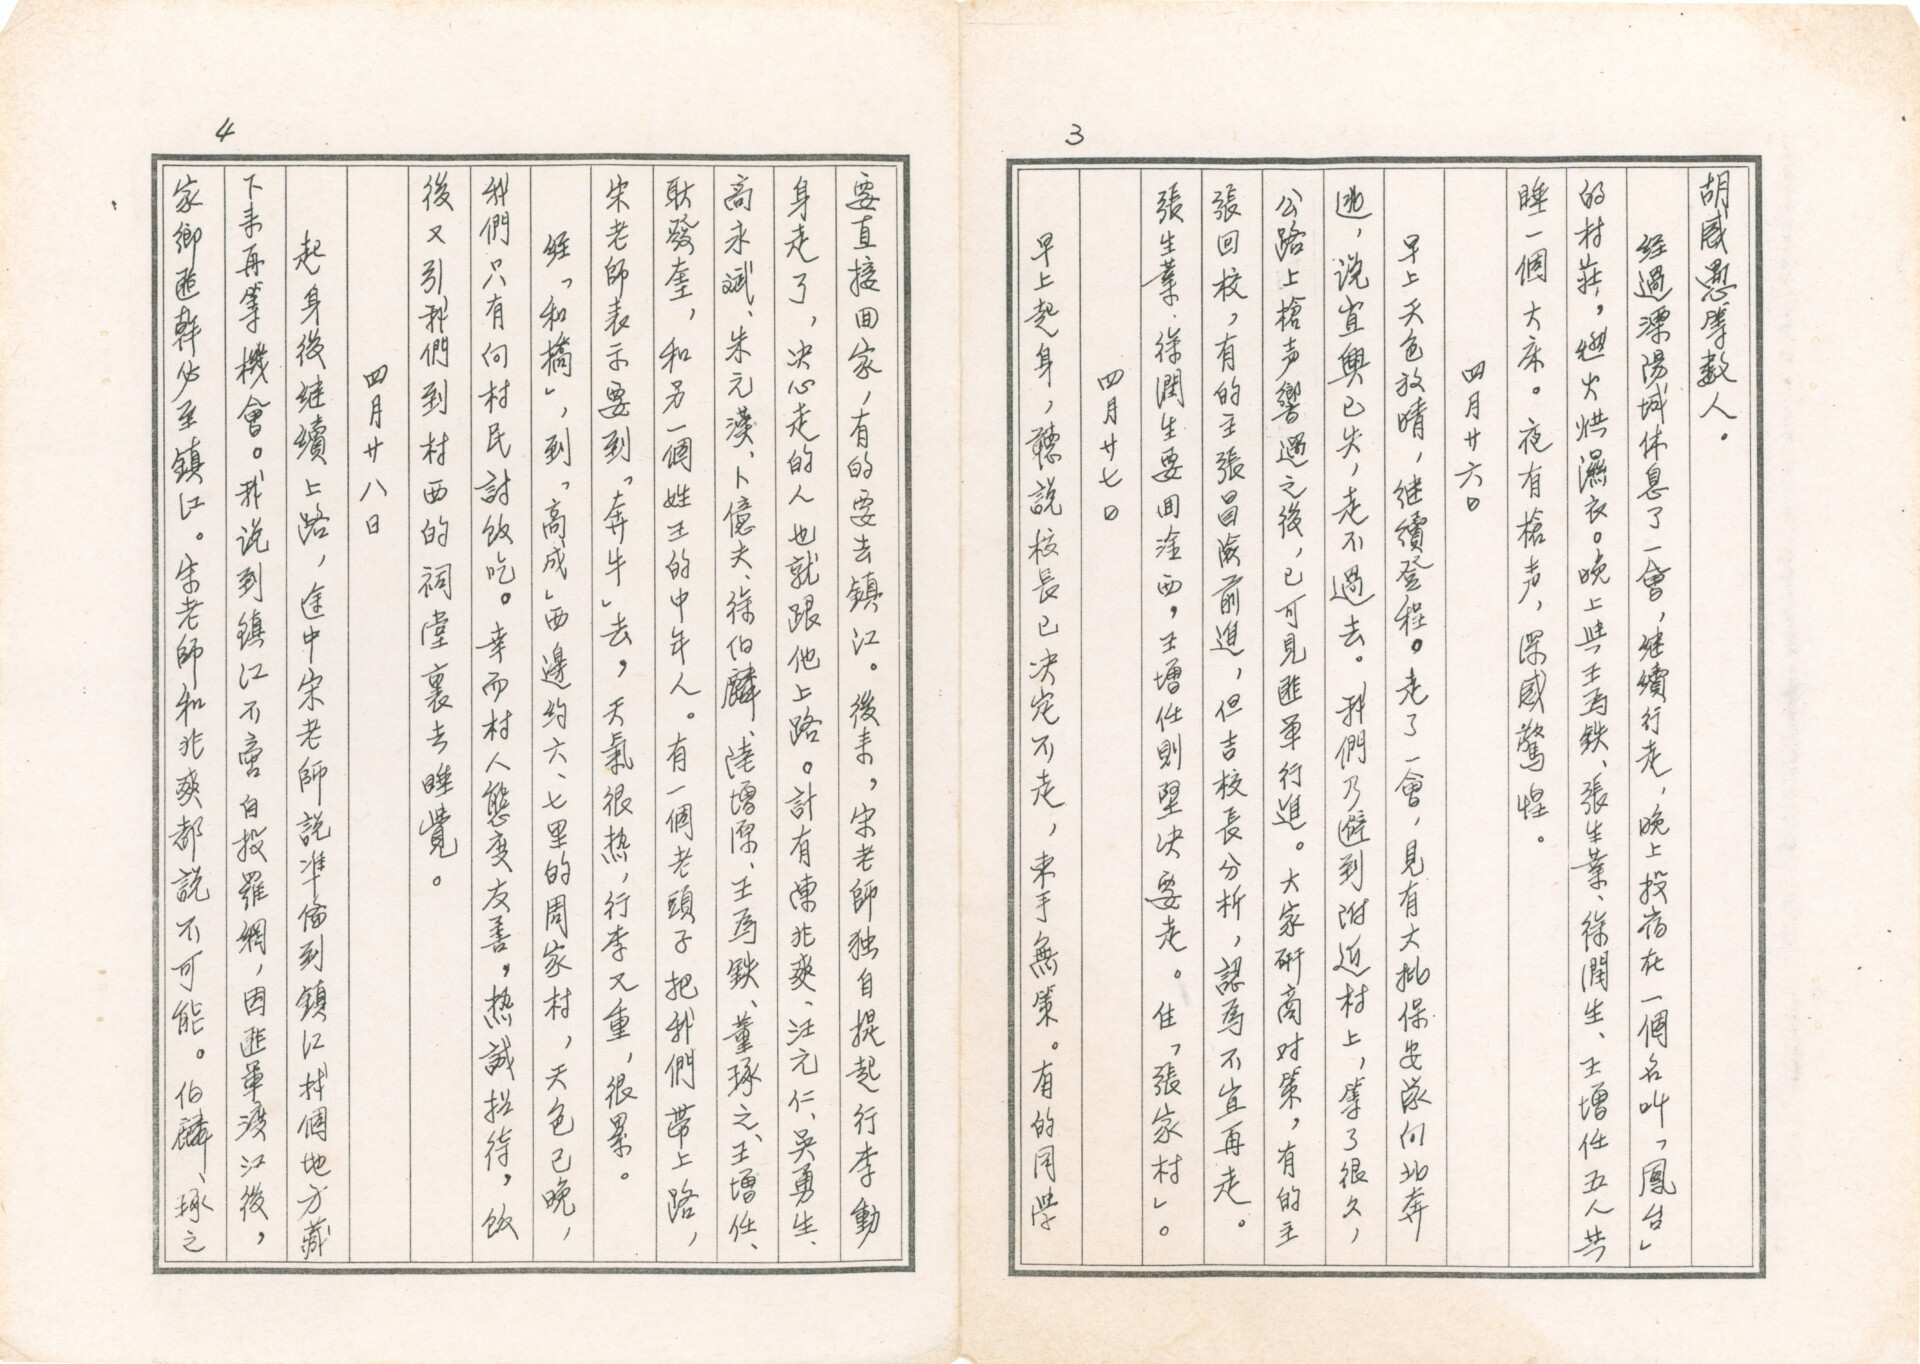 3
胡感愚等數人。
經過溧陽城休息了一會，继續行走，晚上投宿在一個名叫「鳳台」
的村莊，燃火烘濕衣。晚上與王爲鉄、張生業、徐潤生、王增任五人共
睡一個大床。夜有槍声，深感驚惶。
四月廿六日
早上天色放晴，继續登程。走了一會，見有大批保安隊向北奔
逃，说宜興已失，走不過去。我們乃避到附近村上，等了很久，
公路上槍声響過之後，已可見匪軍行進。大家研商对策，有的主
張回校，有的主張冒險前進，但吉校長分析，認爲不宜再走。
張生業、徐潤生要回淦西，王增任則堅决要走。住「張家村」。
四月廿七日
早上起身，聽說校長已决定不走，束手無策。有的同学
4
要直接回家，有的要去鎮江。後来，宋老師独自提起行李動
身走了，决心走的人也就跟他上路。計有陳兆奭、汪元仁、吳勇生、
高永斌、朱元漢、卜億夫、徐伯麟、陸增原、王爲鉄、董琢之、王增任、
耿發奎，和另一個姓王的中年人。有一個老頭子把我們带上路，
宋老師表示要到「奔牛」去，天氣很热，行李又重，很累。
經「和橋」，到「高成」西邊约六、七里的周家村，天色已晚，
我們只有向村民討飯吃。幸而村人態度友善，热誠招待，飯
後又引我們到村西的祠堂裏去睡覺。
四月廿八日
起身後继續上路，途中宋老師說準備到鎮江找個地方藏
下来再等機會。我说到鎮江不啻自投羅網，因匪軍渡江後，
家鄉匪幹必至鎮江。宋老師和兆奭都説不可能。伯麟、琢之